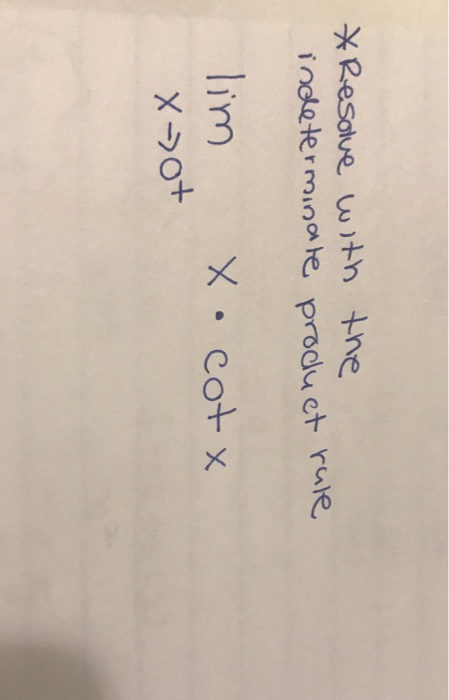 *Resolve with the
indeterminate product rule
lim x • cot x
x→0+